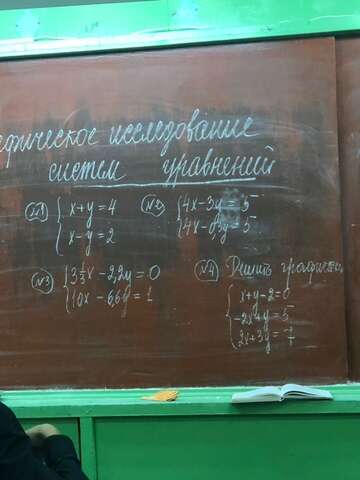 афическое исследование
систем уравнений
№1 { x+y=4
x-y=2
№2 { 4x-3y=5
4x-0,3y=5
№3 { 3⅓x-2,2y=0
10x-6,6y=1
№4 Решить графически
{ x+y-2=0
-2x+y=5
2x+3y=7